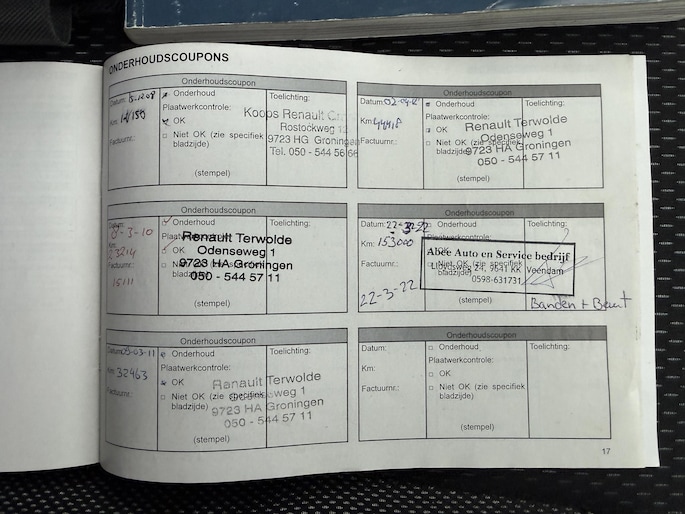 ONDERHOUDSCOUPONS
Onderhoudscoupon
Datum:
Km:
Factuurnr.:
Onderhoud
Plaatwerkcontrole:
OK
Niet OK (zie specifiek
bladzijde)
(stempel)
Toelichting:
Koops Renault
Rostockweg
9723 HG Groningen
Tel. 050 - 544 56 66
Onderhoudscoupon
Datum: 8-3-10
Km:
23214
Factuurnr.:
15111
Onderhoud
OK
(stempel)
Toelichting:
Renault Terwolde
Odenseweg 1
9723 HA Groningen
050 - 544 57 11
Onderhoudscoupon
Datum: 05-03-11
Km: 32463
Factuurnr.:
Onderhoud
Plaatwerkcontrole:
OK
Niet OK (zie specifiek
bladzijde)
(stempel)
Toelichting:
Renault Terwolde
Odenseweg 1
9723 HA Groningen
050 - 544 57 11
Onderhoudscoupon
Datum:
Km:
Factuurnr.:
Onderhoud
Plaatwerkcontrole:
OK
Niet OK (zie specifiek
bladzijde)
(stempel)
Toelichting:
Renault Terwolde
Odenseweg 1
9723 HA Groningen
050 - 544 57 11
Onderhoudscoupon
Datum: 22-3-22
Km: 153000
Factuurnr.:
22-3-22
Onderhoud
Niet OK (zie specifiek
bladzijde)
(stempel)
Toelichting:
Abee Auto en Service bedrijf
24, 9641 KK Veendam
0598-631731
Banden +
Onderhoudscoupon
Datum:
Km:
Factuurnr.:
Onderhoud
Plaatwerkcontrole:
OK
Niet OK (zie specifiek
bladzijde)
(stempel)
Toelichting:
17